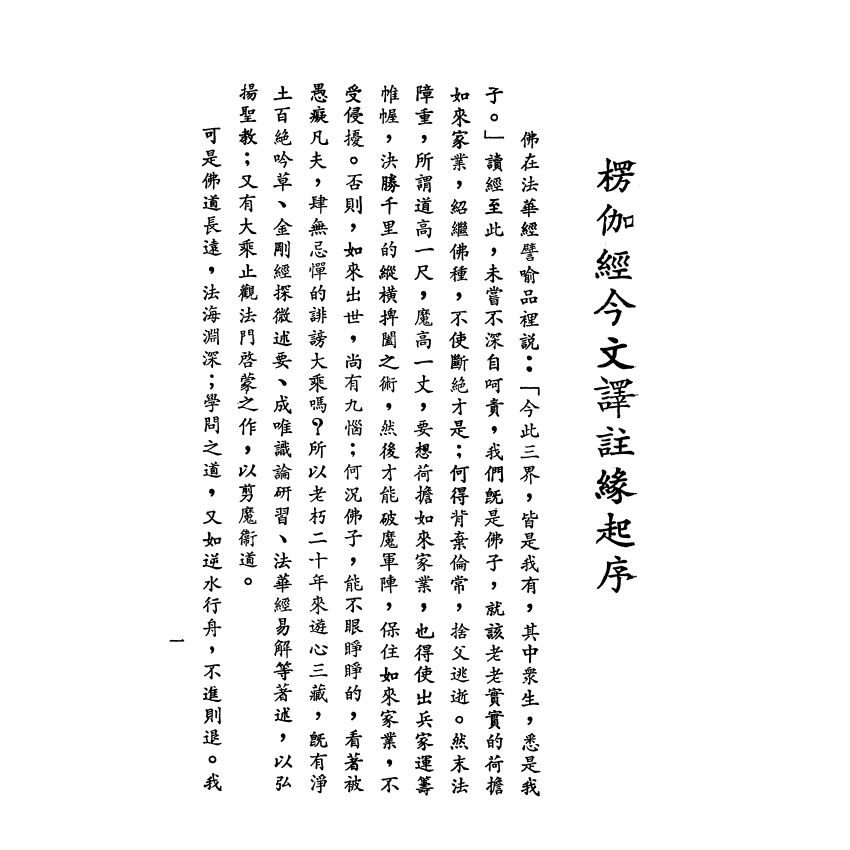 楞伽經今文譯註緣起序
佛在法華經譬喻品裡説：「今此三界，皆是我有，其中衆生，悉是我
子。」讀經至此，未嘗不深自呵責，我們既是佛子，就該老老實實的荷擔
如來家業，紹繼佛種，不使斷絕才是；何得背棄倫常，捨父逃逝。然末法
障重，所謂道高一尺，魔高一丈，要想荷擔如來家業，也得使出兵家運籌
帷幄，決勝千里的縱橫捭闔之術，然後才能破魔軍陣，保住如來家業，不
受侵擾。否則，如來出世，尚有九惱；何況佛子，能不眼睜睜的，看著被
愚癡凡夫，肆無忌憚的誹謗大乘嗎？所以老朽二十年來遊心三藏，既有淨
土百絕吟草、金剛經探微述要、成唯識論研習、法華經易解等著述，以弘
揚聖教；又有大乘止觀法門啓蒙之作，以剪魔衛道。
可是佛道長遠，法海淵深；學問之道，又如逆水行舟，不進則退。我
一